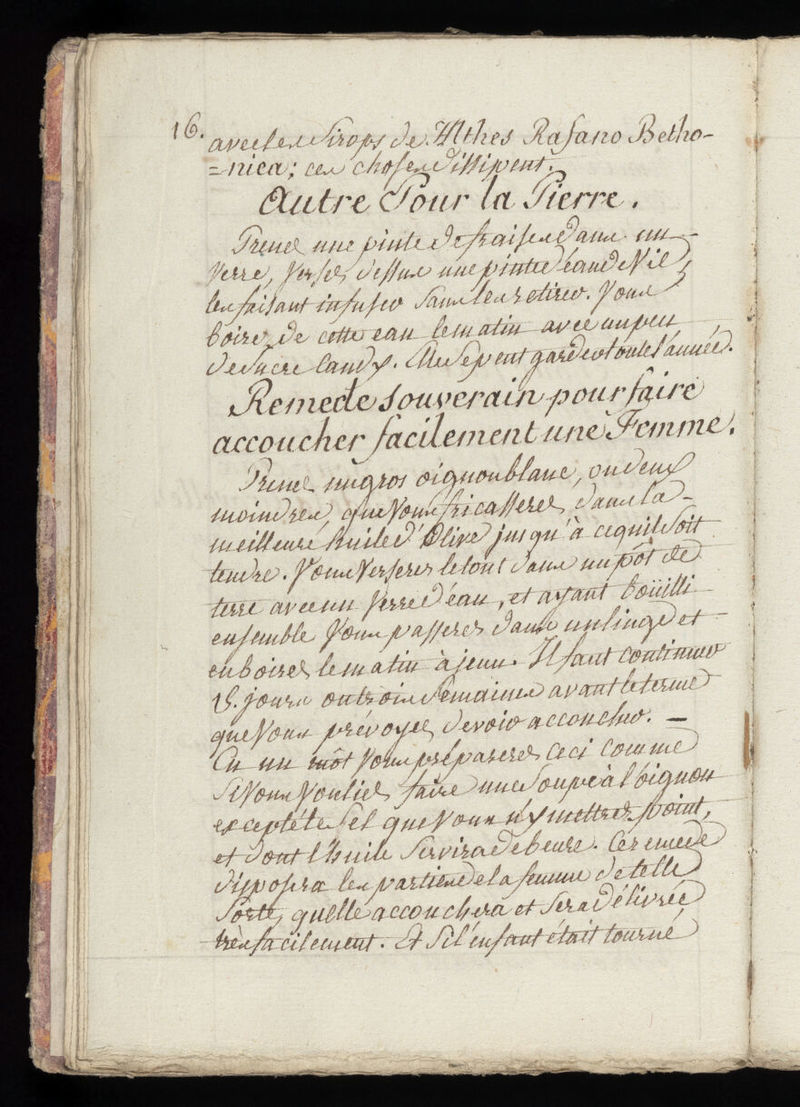 16.
avec les Sirops de Althes Rafano Betho-
=nica; ces choses dissipent.
Autre Pour la Pierre.
Prenez une pinte de fraises dans un
Verre, Versez dessus une pinte d'eau de Vie,
les faisant infuser sans les retirer. Vous
boirez de cette eau le matin avec un peu
de Sucre Candy. Elle se peut garder toute l'année.
Remede Souverain pour faire
accoucher facilement une Femme.
Prenez un gros oignon blanc, ou deux
moindres, que Vous fricasserez dans la
meilleure huile d'Olive jusqu'à ce qu'il Soit
tendre. Vous Verserez le tout dans un pôt de
terre avec un Verre d'eau, et ayant boüilli
ensemble Vous passerez dans un linge et
en boirez le matin à jeun. Il faut continuer
15. jours ou trois Semaines avant le terme
que Vous prévoyez devoir accoucher. —
En un môt Vous préparerez ceci comme
Si Vous Vouliez faire une Soupe à l'oignon
excepté le Sel que Vous n'y mettrez point,
et dont l'huile Servira de beure. Ce remede
disposera les parties de la femme de telle
Sorte, quelle accouchera et Sera délivrée
très facilement. Et Si l'enfant était tourné